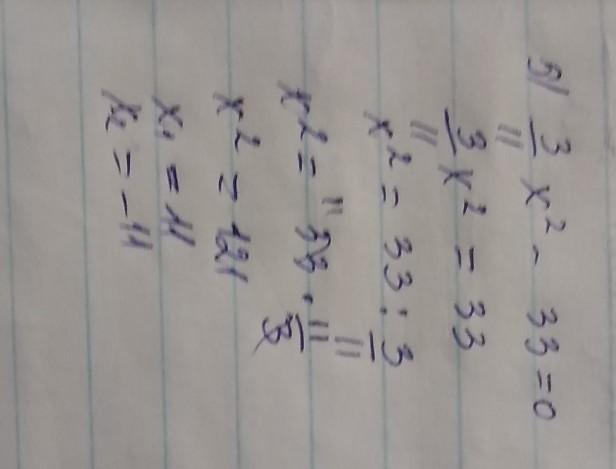 5) 3/11 x² - 33 = 0
3/11 x² = 33
x² = 33 : 3/11
x² = 33 · 11/3
x² = 121
x₁ = 11
x₂ = -11